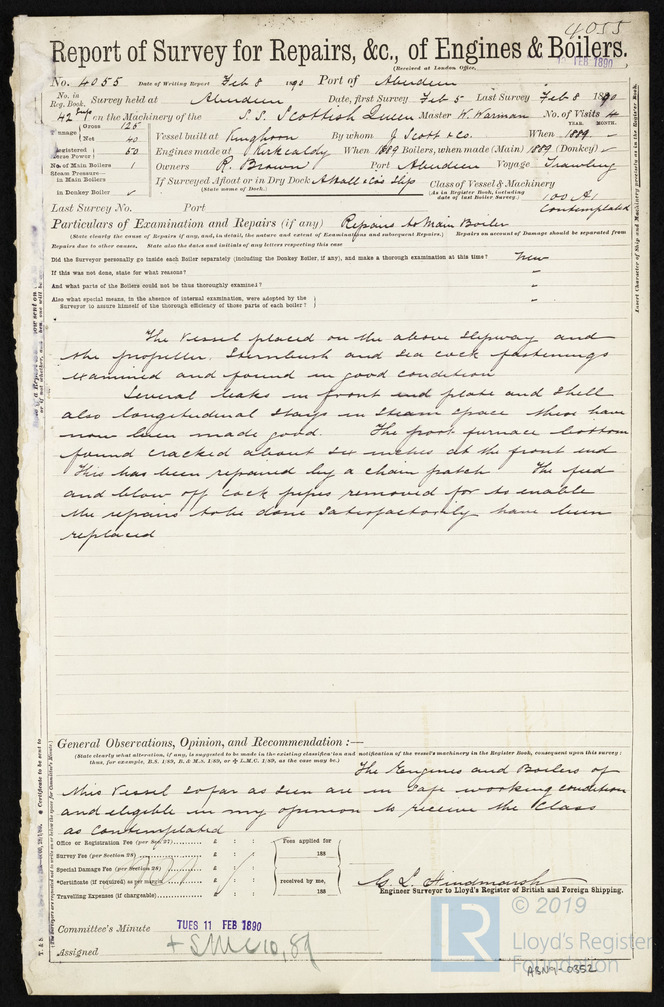 4055
Report of Survey for Repairs, &c., of Engines & Boilers.
(Received at London Office,
FEB 1890
No. 4055 Date of Writing Report Feb 8 1890 Port of Aberdeen
No. in Reg. Book. Survey held at Aberdeen Date, first Survey Feb 5 Last Survey Feb 8 1890
42 on the Machinery of the S.S. Scottish Queen Master W. Warman No. of Visits 4
YEAR. MONTH.
Tonnage Gross 125 Net 40 Vessel built at Kinghorn By whom J. Scott & Co. When 1889
Registered Horse Power 50 Engines made at Kirkcaldy When 1889 Boilers, when made (Main) 1889 (Donkey) ✓
No. of Main Boilers 1 Owners R. Brown Port Aberdeen Voyage Trawling
Steam Pressure— in Main Boilers
If Surveyed Afloat or in Dry Dock A Hall & Co's Slip Class of Vessel & Machinery
(State name of Dock.) (As in Register Book, including date of last Boiler Survey.)
in Donkey Boiler ✓ 100 A1 Contemplated
Last Survey No. Port
Particulars of Examination and Repairs (if any) Repairs to Main Boiler
(State clearly the cause of Repairs if any, and, in detail, the nature and extent of Examinations and subsequent Repairs.) Repairs on account of Damage should be separated from
Repairs due to other causes. State also the dates and initials of any letters respecting this case
Did the Surveyor personally go inside each Boiler separately (including the Donkey Boiler, if any), and make a thorough examination at this time? New
If this was not done, state for what reasons? "
And what parts of the Boilers could not be thus thoroughly examined? "
Also what special means, in the absence of internal examination, were adopted by the
Surveyor to assure himself of the thorough efficiency of those parts of each boiler? "
The Vessel placed on the above slipway and
the propeller Sternbush and Sea cock fastenings
examined and found in good condition
Several leaks in front end plate and shell
also longitudinal stays in steam space these have
now been made good. The port furnace bottom
found cracked about six inches at the front end
This has been repaired by a chain patch The feed
and blow off cock pipes removed for to enable
the repairs to be done satisfactorily have been
replaced
General Observations, Opinion, and Recommendation:—
(State clearly what alteration, if any, is suggested to be made in the existing classification and notification of the vessel's machinery in the Register Book, consequent upon this survey:
thus, for example, B.S. 1/89, B. & M.S. 1/89, or ✠ L.M.C. 1/89, as the case may be.)
The Engines and Boilers of
this Vessel so far as seen are in safe working condition
and eligible in my opinion to receive the Class
as Contemplated
Office or Registration Fee (per Sec. 27) £ : : Fees applied for
Survey Fee (per Section 28) £ : : 188
Special Damage Fee (per Section 28) £ : :
*Certificate (if required) as per margin £ : : received by me,
Travelling Expenses (if chargeable) £ : : 188
G. L. Hindmarsh
Engineer Surveyor to Lloyd's Register of British and Foreign Shipping.
Committee's Minute TUES 11 FEB 1890
Assigned + LMC 10,89
© 2019
LR Lloyd's Register Foundation
ABN9-0352
Insert Character of Ship and Machinery precisely as in the Register Book.
* Certificate to be sent to